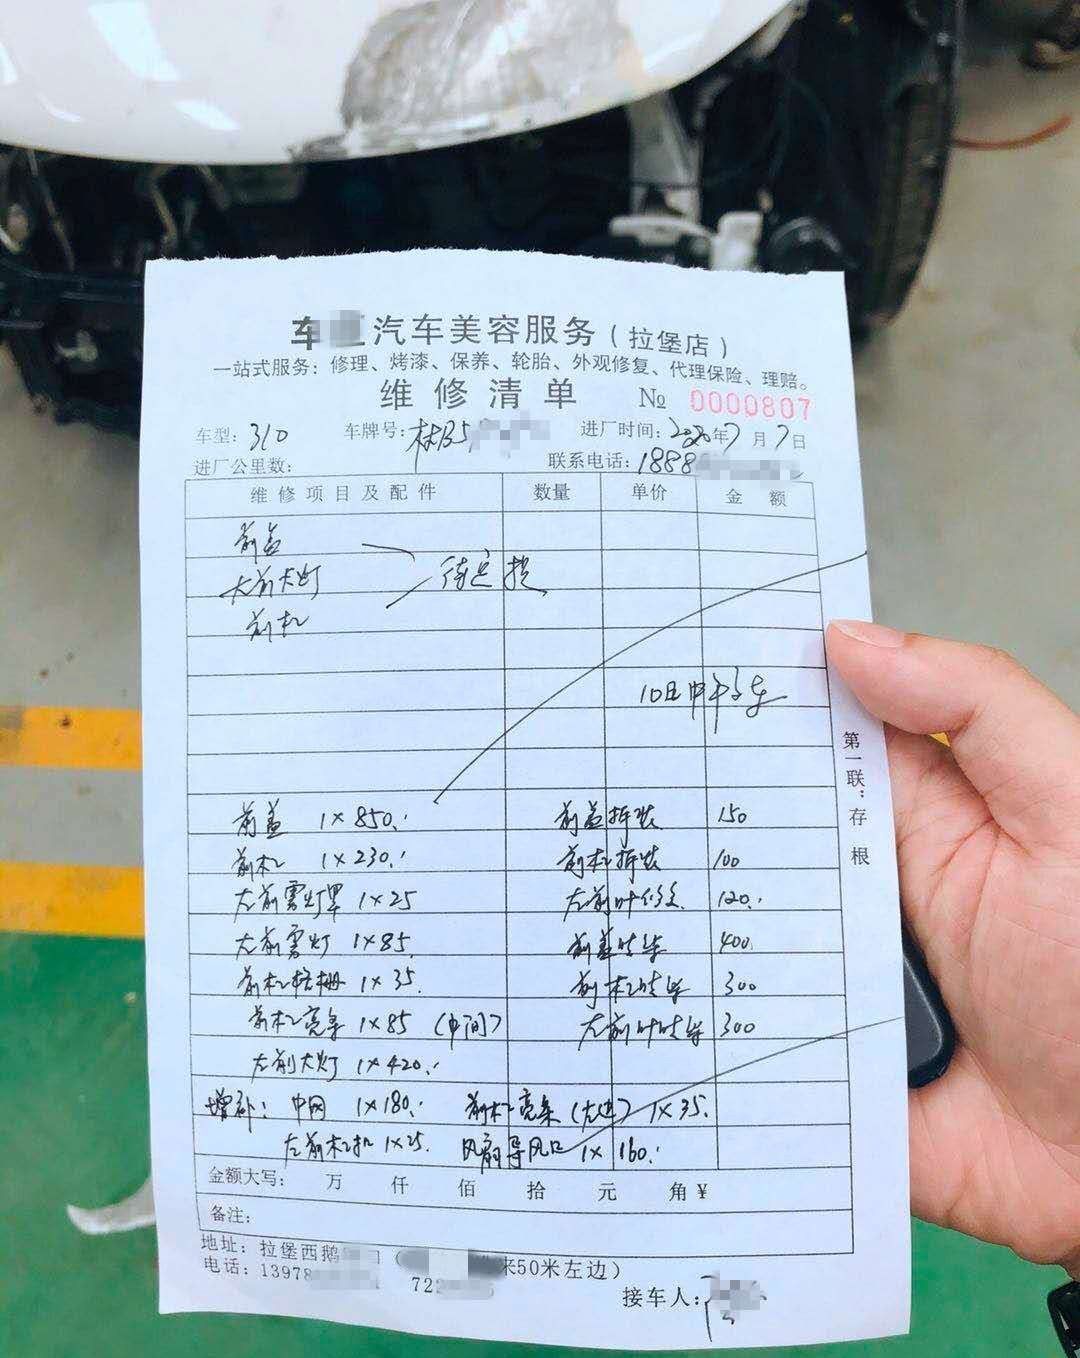 车 汽车美容服务(拉堡店)
一站式服务：修理、烤漆、保养、轮胎、外观修复、代理保险、理赔。
维修清单 № 0000807
车型：310 车牌号：桂B5 进厂时间：2020年7月7日
进厂公里数： 联系电话：1888
维修项目及配件 数量 单价 金额
前盖
左前大灯 待定损
前杠
10日中午交车
第一联：存根
前盖 1×850. 前盖拆装 150
前杠 1×230. 前杠拆装 100
左前雾灯罩 1×25 左前叶修复 120.
左前雾灯 1×85. 前盖喷漆 400
前杠格栅 1×35. 前杠喷漆 300
前杠亮条 1×85 (中间) 左前叶喷漆 300
左前大灯 1×420.
增补：中网 1×180. 前杠亮条(左边) 1×35.
左前杠扣 1×25. 风扇导风口 1×160.
金额大写： 万 仟 佰 拾 元 角 ¥
备注：
地址：拉堡西鹅 ( 来50米左边)
电话：13978 722
接车人：